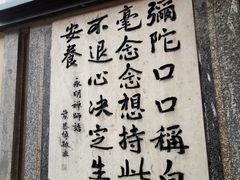 彌陀口口稱白
毫念念想持此
不退心決定生
安養
永明禪師語
葉恭綽敬